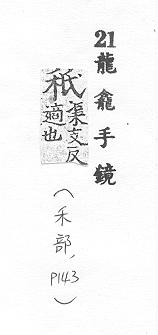 21龍龕手鏡
秖渠支反
適也
(禾部,P143)